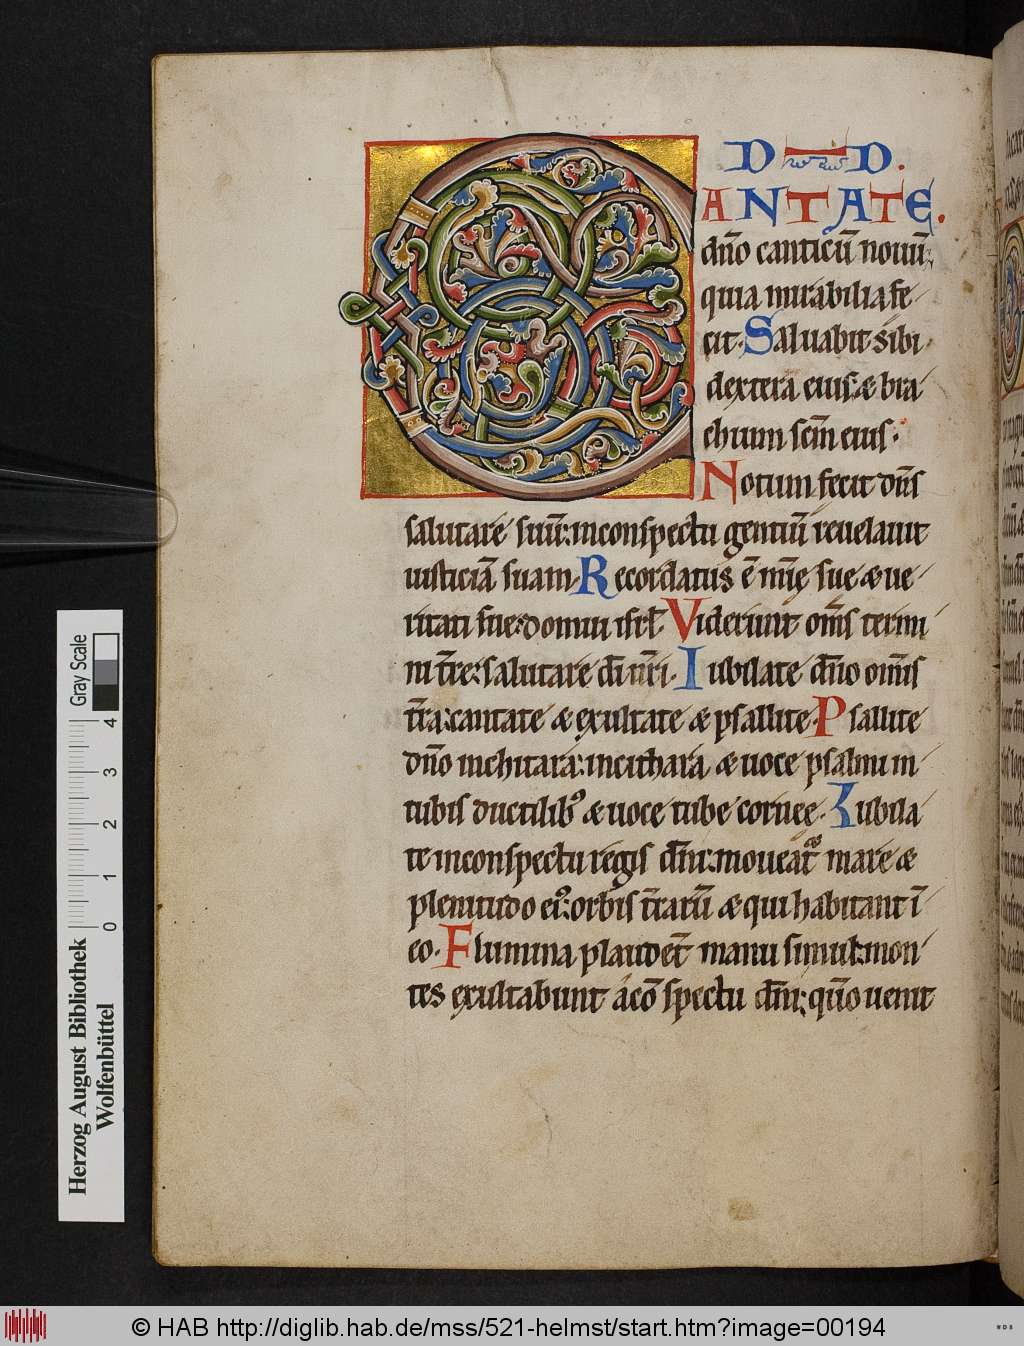 CANTATE.
dño canticũ nouũ;
quia mirabilia fe
cit. Saluabit sibi
dextera eius: & bra
chium scm̃ eius.
Notum fecit dñs
salutare suũ: in conspectu gentiũ reuelauit
iusticiã suam. Recordatus ẽ mĩę sue & ue
ritati sue: domui isrl̃. Viderunt om̃s termi
ni t̃re: salutare dĩ nr̃i. Iubilate dño om̃is
t̃ra: cantate & exultate & psallite. Psallite
dño in chitara: in cithara & uoce psalmi in
tubis ductilib; & uoce tube corneę. Iubila
te in conspectu regis dñi: moueat᷑ mare &
plenitudo ei᷒: orbis t̃rarũ & qui habitant ĩ
eo. Flumina plaudẽt manu simul: mon
tes exultabunt a cõspectu dñi: qm̃ uenit
Herzog August Bibliothek
Wolfenbüttel
Gray Scale
0 1 2 3 4
© HAB http://diglib.hab.de/mss/521-helmst/start.htm?image=00194